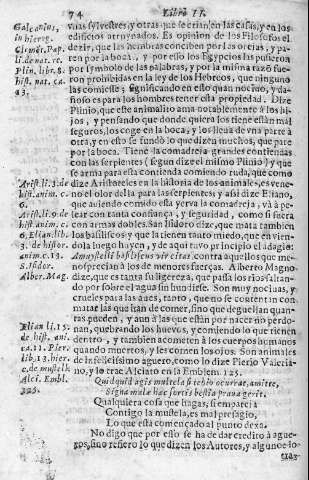 74 Libro II.
unas sylvestres, y otras que se crian en las casas, y en los
edificios arruynados. Es opinion de los Filosofos el
dezir, que las hembras conciben por las orejas, y pa-
ren por la boca, y por esso los Egypcios las pusieron
por symbolo de las palabras, y por la misma razō fue
ron prohibidas en la ley de los Hebreos, que ninguno
las comiesse; significando en esto quan nocivo, y da-
ñoso es para los hombres tener esta propiedad. Dize
Plinio, que este animalito ama notablemente à los hi-
jos, y pensando que donde quiera los tiene estàn mal
seguros, los coge en la boca, y los lleua de vna parte à
otra, y en esto se fundò lo que dizen muchos, que pare
por la boca. Tiene la comadreja grandes contiendas
con las serpientes (segun dize el mismo Plinio) y que
se arma para esta contienda comiendo ruda, que como
dize Aristoteles en la historia de los animales, es vene-
no el olor della para las serpientes, y assi dize Eliano,
que auiendo comido esta yerva la comadreja, và à pe-
lear con tanta confiança, y seguridad, como si fuera
con armas dobles. San Isidoro dize, que mata tambien
los basiliscos y que la tienen tanto miedo, que en vien-
dola luego huyen, y de aqui tuvo principio el adagio:
basiliscus vir citus. contra aquellos que me-
nosprecian à los de menores fuerças. Alberto Magno
dize, que es tanta su ligereza, que passa los rios saltan-
do por sobre el agua sin hundirse. Son muy nocivas, y
crueles para las aues, tanto, que no se contentan con
matar las que han de comer, sino que deguellan quan-
tas pueden, y aun à las que estàn por nacer no perdo-
nan, quebrando los huevos, y comiendo lo que tienen
dentro, y tambien acometen à los cuerpos humanos
quando muertos, y les comen los ojos. Son animales
de infelicissimo aguero, como lo dize Pierio Valeria-
no, y lo trae Alciato en la Emblem. 125.
Quidquid agis mustela si tibio ocurrat, amitte,
Signa malæ hæc sortis bestia prava gerit.
Qualquiera cosa que hagas, si empareja
Contigo la mustela, es mal presagio,
Lo que està començado al punto dexa.
No digo que esto se ha de dar credito à ague-
ros, sino refiero lo que dizen los Autores, y algunos lo
Galconius,
in hierog.
Plin. libr. 8.
hist. nat. ca.
Arist. l. 3. de
hist. anim. c.
6.
Arist. li. 9. de
hist. anim. c.
6. Elian. lib.
3. de histor.
anim. c. 13.
S. Isidor.
Alber. Mag.
Elian li. 15.
de hist. ani.
ca. 11. Pier.
lib. 13. hier.
c. de mustell.
Alci. Embl.
126.